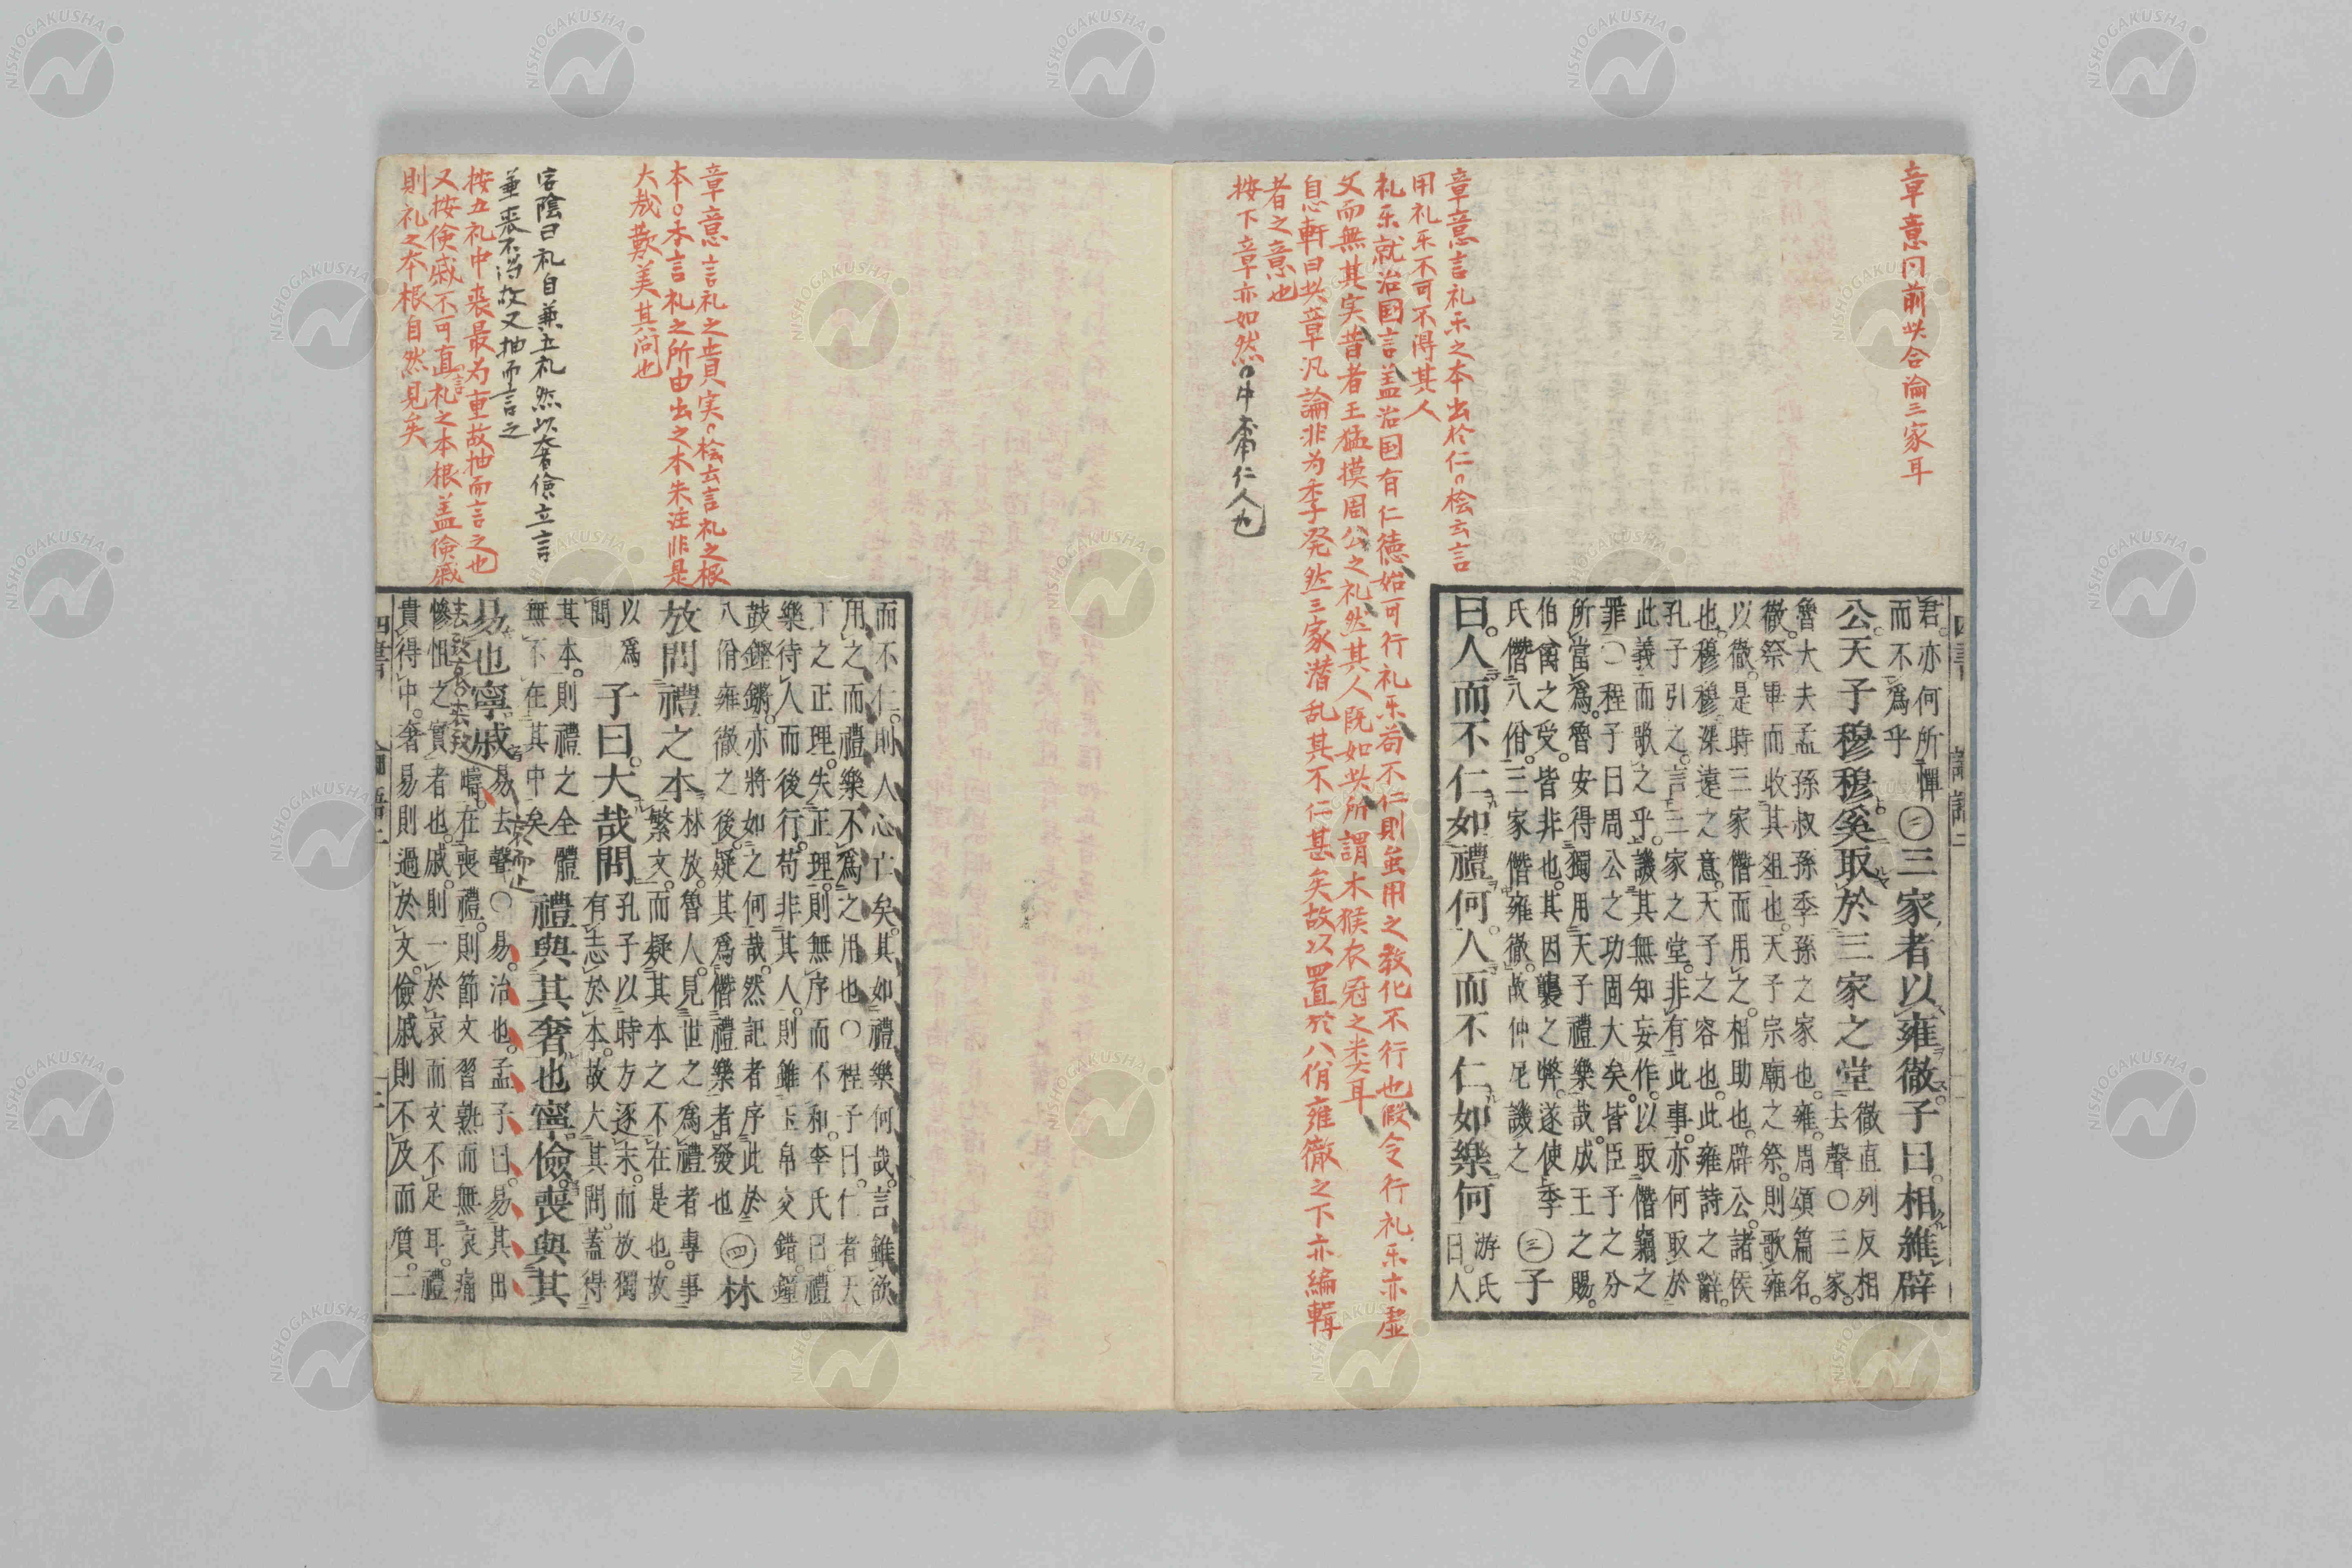 章意同前此合論三家耳
君亦何所憚㊁三家者以雍徹子曰相維辟
而不爲乎
公天子穆穆奚取於三家之堂徹直列反相
去聲○三家
魯大夫孟孫叔孫季孫之家也雍周頌篇名
徹祭畢而收其俎也天子宗廟之祭則歌雍
以徹是時三家僭而用之相助也辟公諸侯
也穆穆深遠之意天子之容也此雍詩之辭
孔子引之言三家之堂非有此事亦何取於
此義而歌之乎譏其無知妄作以取僭竊之
罪○程子曰周公之功固大矣皆臣子之分
所當爲魯安得獨用天子禮樂哉成王之賜
伯禽之受皆非也其因襲之弊遂使季
氏僭八佾三家僭雍徹故仲尼譏之㊂子
曰人而不仁如禮何人而不仁如樂何游氏
曰人
章意言礼乐之本出於仁。桧云言
用礼乐不可不得其人
礼乐就治国言盖治国有仁徳始可行礼乐苟不仁則虽用之教化不行也假令行礼乐亦虚
文而無其実昔者王猛摸周公之礼然其人既如此所謂木猴衣冠之类耳
息軒曰此章汎論非为季発然三家潜乱其不仁甚矣故以置於八佾雍徹之下亦編輯
者之意也
按下章亦如然。中庸仁人也
而不仁則人心亡矣其如禮樂何哉言雖欲
用之而禮樂不爲之用也○程子曰仁者天
下之正理失正理則無序而不和李氏曰禮
樂待人而後行苟非其人則雖玉帛交錯鐘
鼓鏗鏘亦將如之何哉然記者序此於
八佾雍徹之後疑其爲僭禮樂者發也㊃林
放問禮之本林放魯人見世之爲禮者專事
繁文而疑其本之不在是也故
以爲
問子曰大哉問孔子以時方逐末而放獨
有志於本故大其問蓋得
其本則禮之全體
無不在其中矣禮與其奢也寧儉喪與其
易也寧戚易去聲○易治也孟子曰易其田
疇在喪禮則節文習熟而無哀痛
慘怛之實者也戚則一於哀而文不足耳禮
貴得中奢易則過於文儉戚則不及而質二
章意言礼之貴実。桧云言礼之根
本。本言礼之所由出之本朱注非是
大哉歎美其问也
宕陰曰礼自兼五礼然以奢儉立言
兼喪不得故又抽而言之
按五礼中喪最为重故抽而言之也
又按儉戚不可直言礼之本根盖儉戚
則礼之本根自然見矣
哀而止
NISHOGAKUSHA